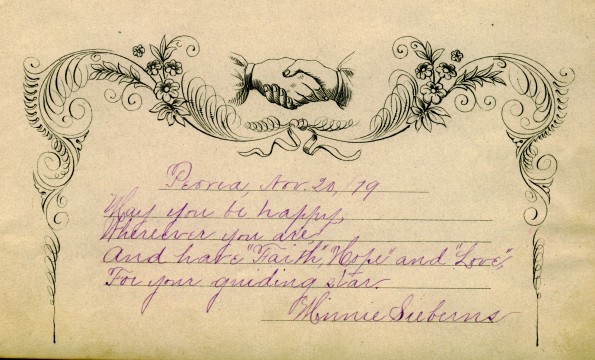 Peoria, Nov. 20, /79
May you be happy,
Wherever you are!
And have "Faith", "Hope" and "Love",
For your guiding star.
Minnie Sieberns